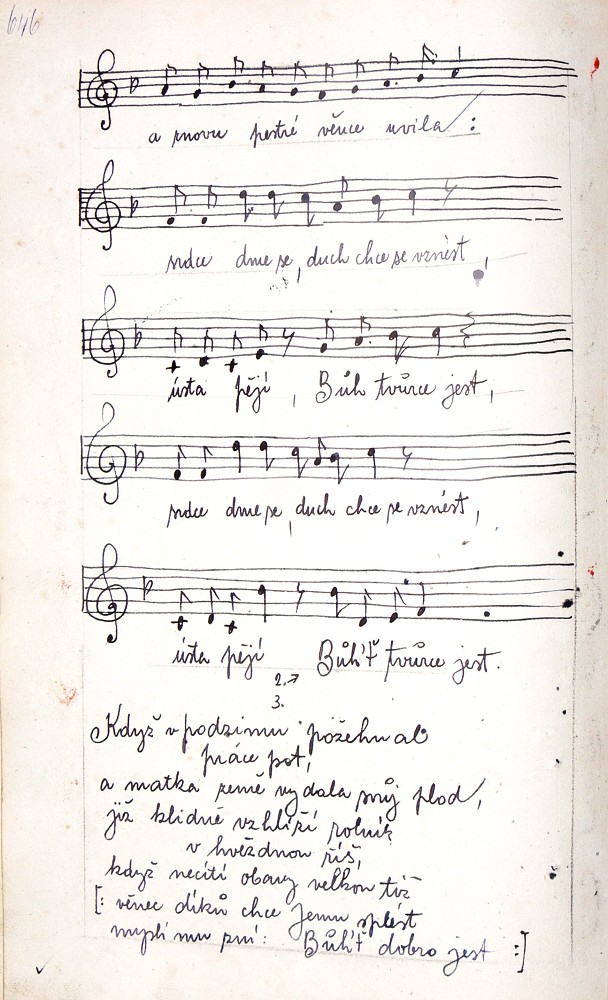 646
a znovu pestré věnce uvila :
srdce dme se, duch chce se vznést,
ústa pějí, Bůh tvůrce jest,
srdce dme se, duch chce se vznést,
ústa pějí Bůh'ť tvůrce jest.
2.
3.
Když v podzimu požehnal
práce pot,
a matka země vydala svůj plod,
již klidně vzhlíží rolník
v hvězdnou říš,
když necítí obavy velkou tíž
[: věnec díků chce Jemu splést
mysl mu zní: Bůh'ť dobro jest :]